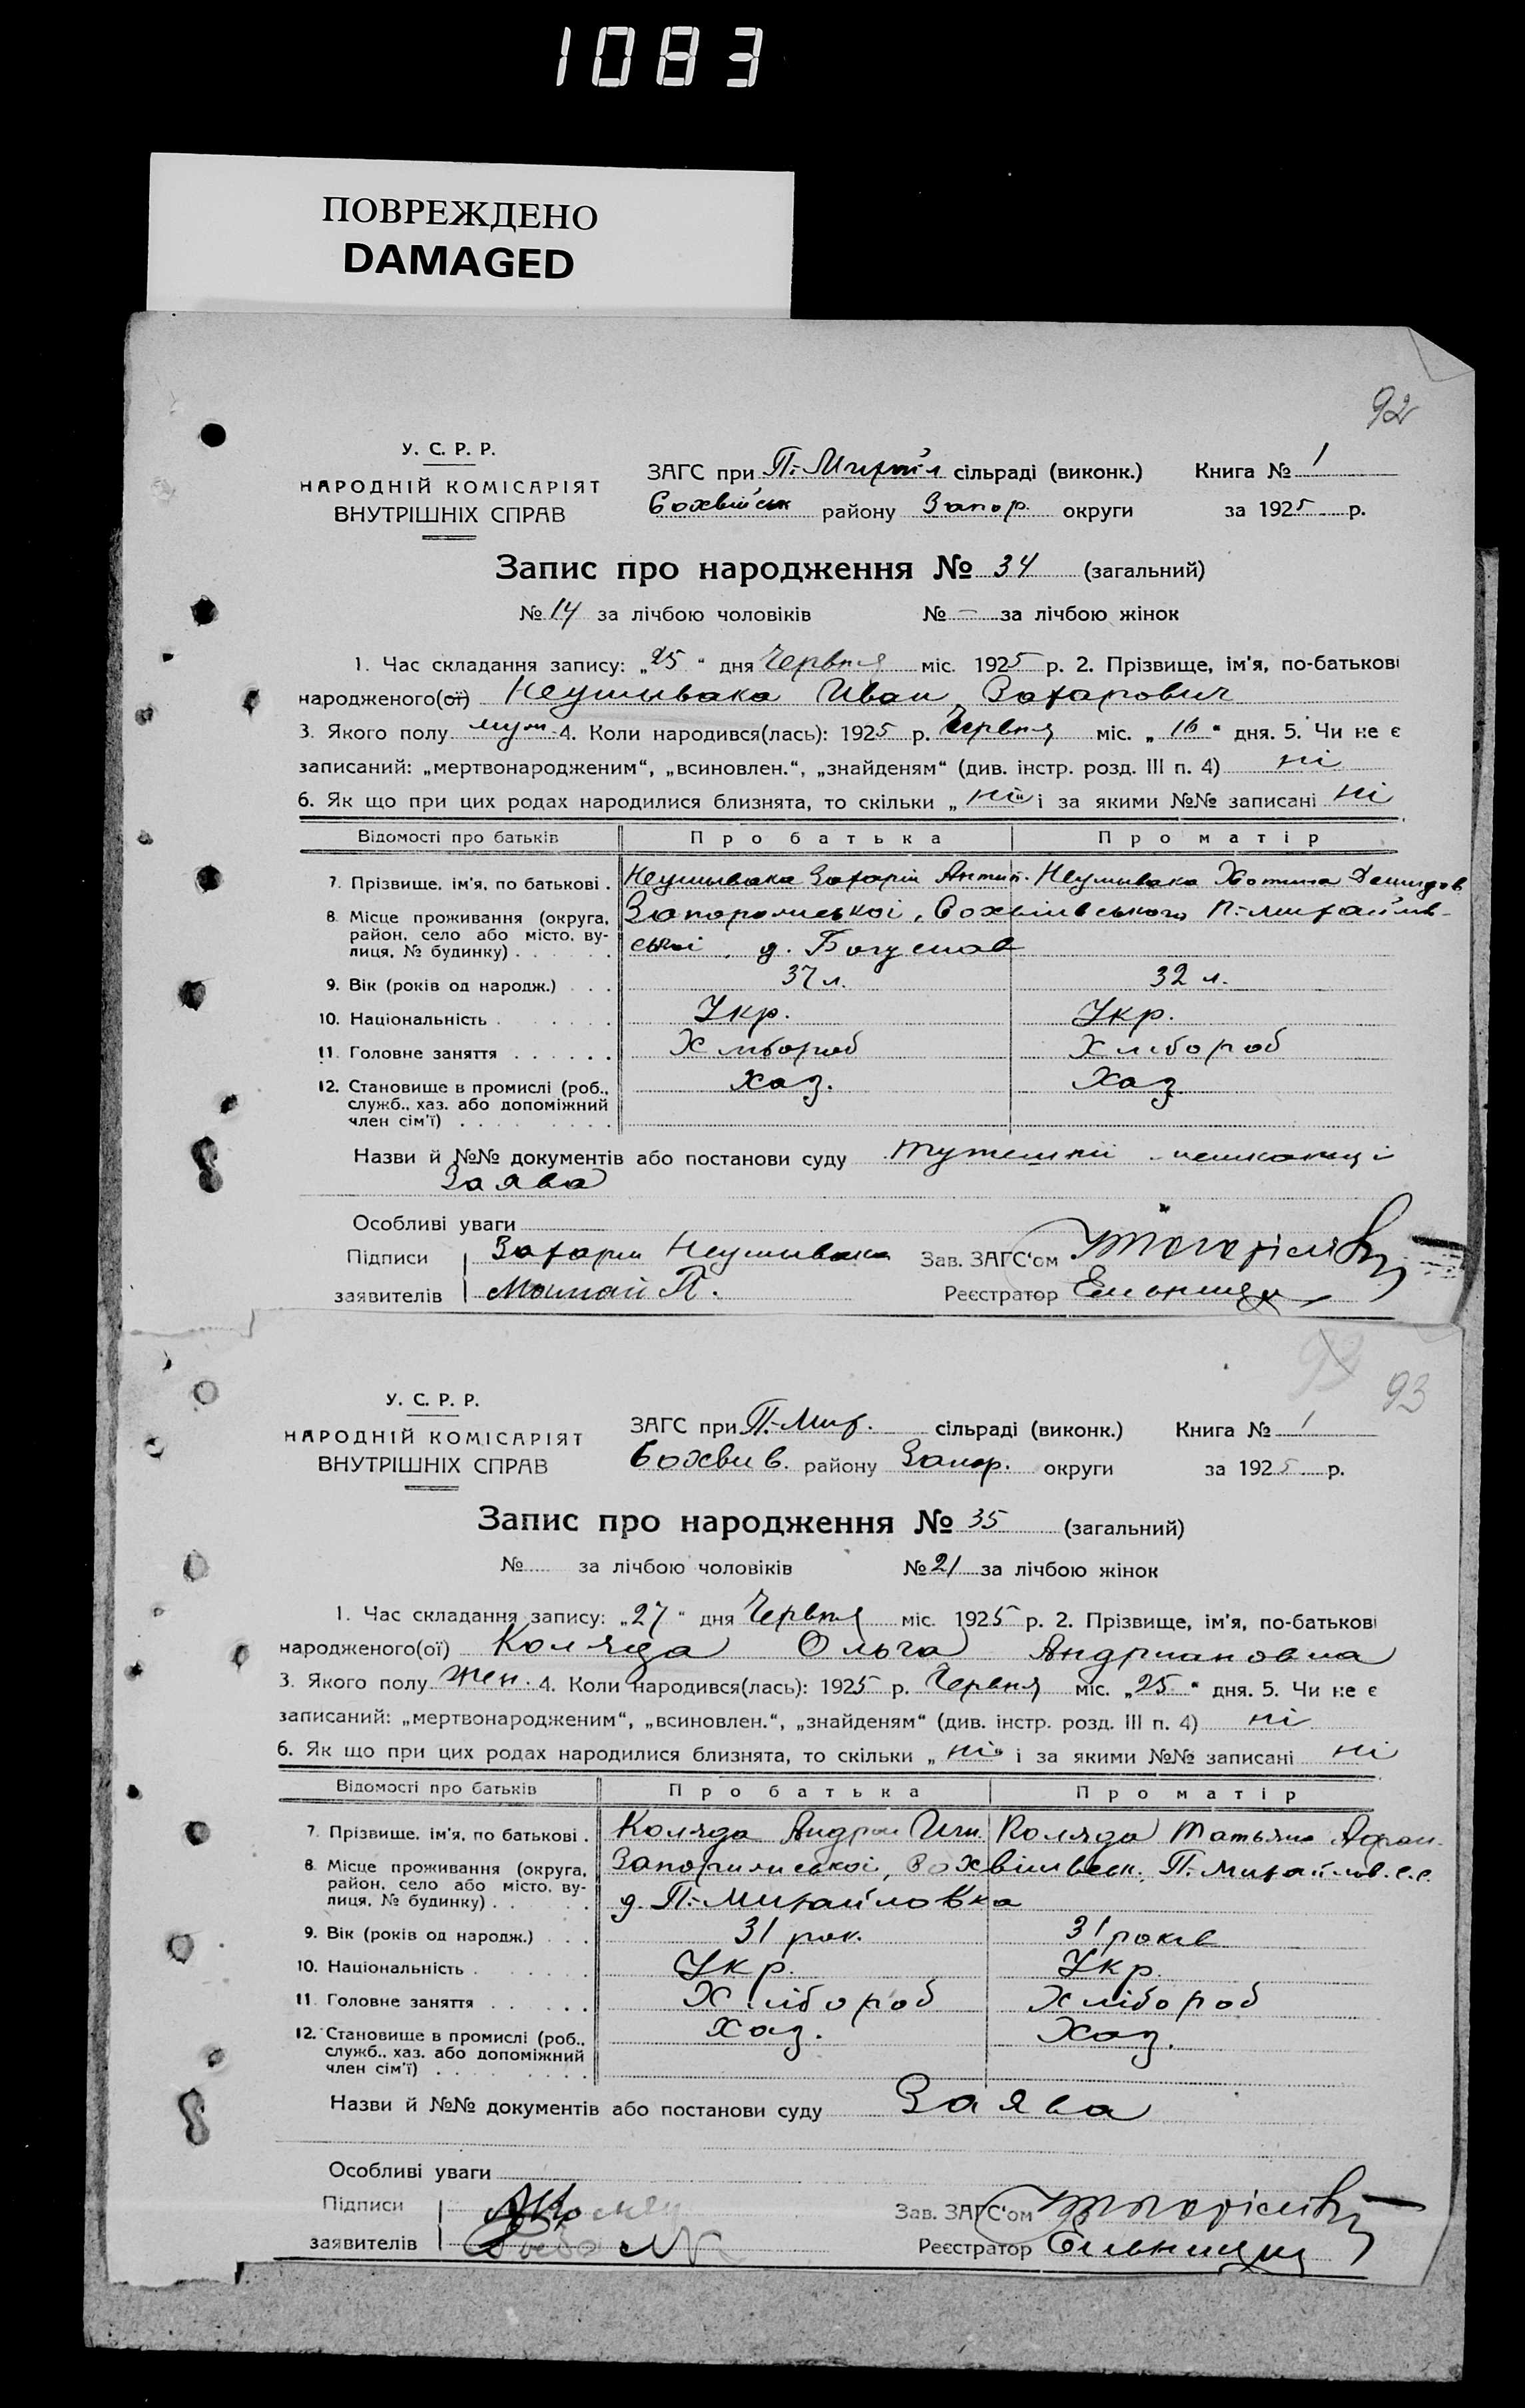 1083
ПОВРЕЖДЕНО
DAMAGED
92
У. С. Р. Р.
НАРОДНІЙ КОМІСАРІЯТ
ВНУТРІШНІХ СПРАВ
ЗАГС при П.-Михайл сільраді (виконк.) Книга № 1
району Запор. округи за 1925 р.
Запис про народження № 34 (загальний)
№ 14 за лічбою чоловіків № — за лічбою жінок
1. Час складання запису: „25“ дня Червня міс. 1925 р. 2. Прізвище, ім'я, по-батькові
народженого(ої) Неушивака Иван Захарович
3. Якого полу муж. 4. Коли народився(лась): 1925 р. Червня міс. „16“ дня. 5. Чи не є
записаний: „мертвонародженим“, „всиновлен.“, „знайденям“ (див. інстр. розд. III п. 4) ні
6. Як що при цих родах народилися близнята, то скільки „ні“ і за якими №№ записані ні
Відомості про батьків Про батька Про матір
7. Прізвище, ім'я, по батькові . Неушивака Захарій Антип. Неушивака Хотина Демидов.
8. Місце проживання (округа, район, село або місто, вулиця, № будинку) . . . . . . П.-Михайлів-
ської, д. Богуслав
9. Вік (років од народж.) . . . 37 л. 32 л.
10. Національність . . . . . . Укр. Укр.
11. Головне заняття . . . . . . Хлібороб Хлібороб
12. Становище в промислі (роб., Хаз. Хаз.
служб., хаз. або допоміжний
член сім'ї) . . . . . . . . .
Назви й №№ документів або постанови суду тутешні мешканці
Заява
Особливі уваги
Підписи Захарий Неушивака Зав. ЗАГС'ом
заявителів Мамай П. Реєстратор
93
93
У. С. Р. Р.
НАРОДНІЙ КОМІСАРІЯТ
ВНУТРІШНІХ СПРАВ
ЗАГС при П.-Мих. сільраді (виконк.) Книга № 1
району Запор. округи за 1925 р.
Запис про народження № 35 (загальний)
№ за лічбою чоловіків № 21 за лічбою жінок
1. Час складання запису: „27“ дня Червня міс. 1925 р. 2. Прізвище, ім'я, по-батькові
народженого(ої) Коляда Ольга Андриановна
3. Якого полу жен. 4. Коли народився(лась): 1925 р. Червня міс. „25“ дня. 5. Чи не є
записаний: „мертвонародженим“, „всиновлен.“, „знайденям“ (див. інстр. розд. III п. 4) ні
6. Як що при цих родах народилися близнята, то скільки „ні“ і за якими №№ записані ні
Відомості про батьків Про батька Про матір
7. Прізвище, ім'я, по батькові . Коляда Коляда Татьяна
8. Місце проживання (округа, П.-Михайлов. с.с.
район, село або місто, ву-
лиця, № будинку) . . . . . . д. П.-Михайловка
9. Вік (років од народж.) . . . 31 рок. 31 років
10. Національність . . . . . . Укр. Укр.
11. Головне заняття . . . . . . Хлібороб Хлібороб
12. Становище в промислі (роб., Хаз. Хаз.
служб., хаз. або допоміжний
член сім'ї) . . . . . . . . .
Назви й №№ документів або постанови суду Заява
Особливі уваги
Підписи Зав. ЗАГС'ом
заявителів Реєстратор